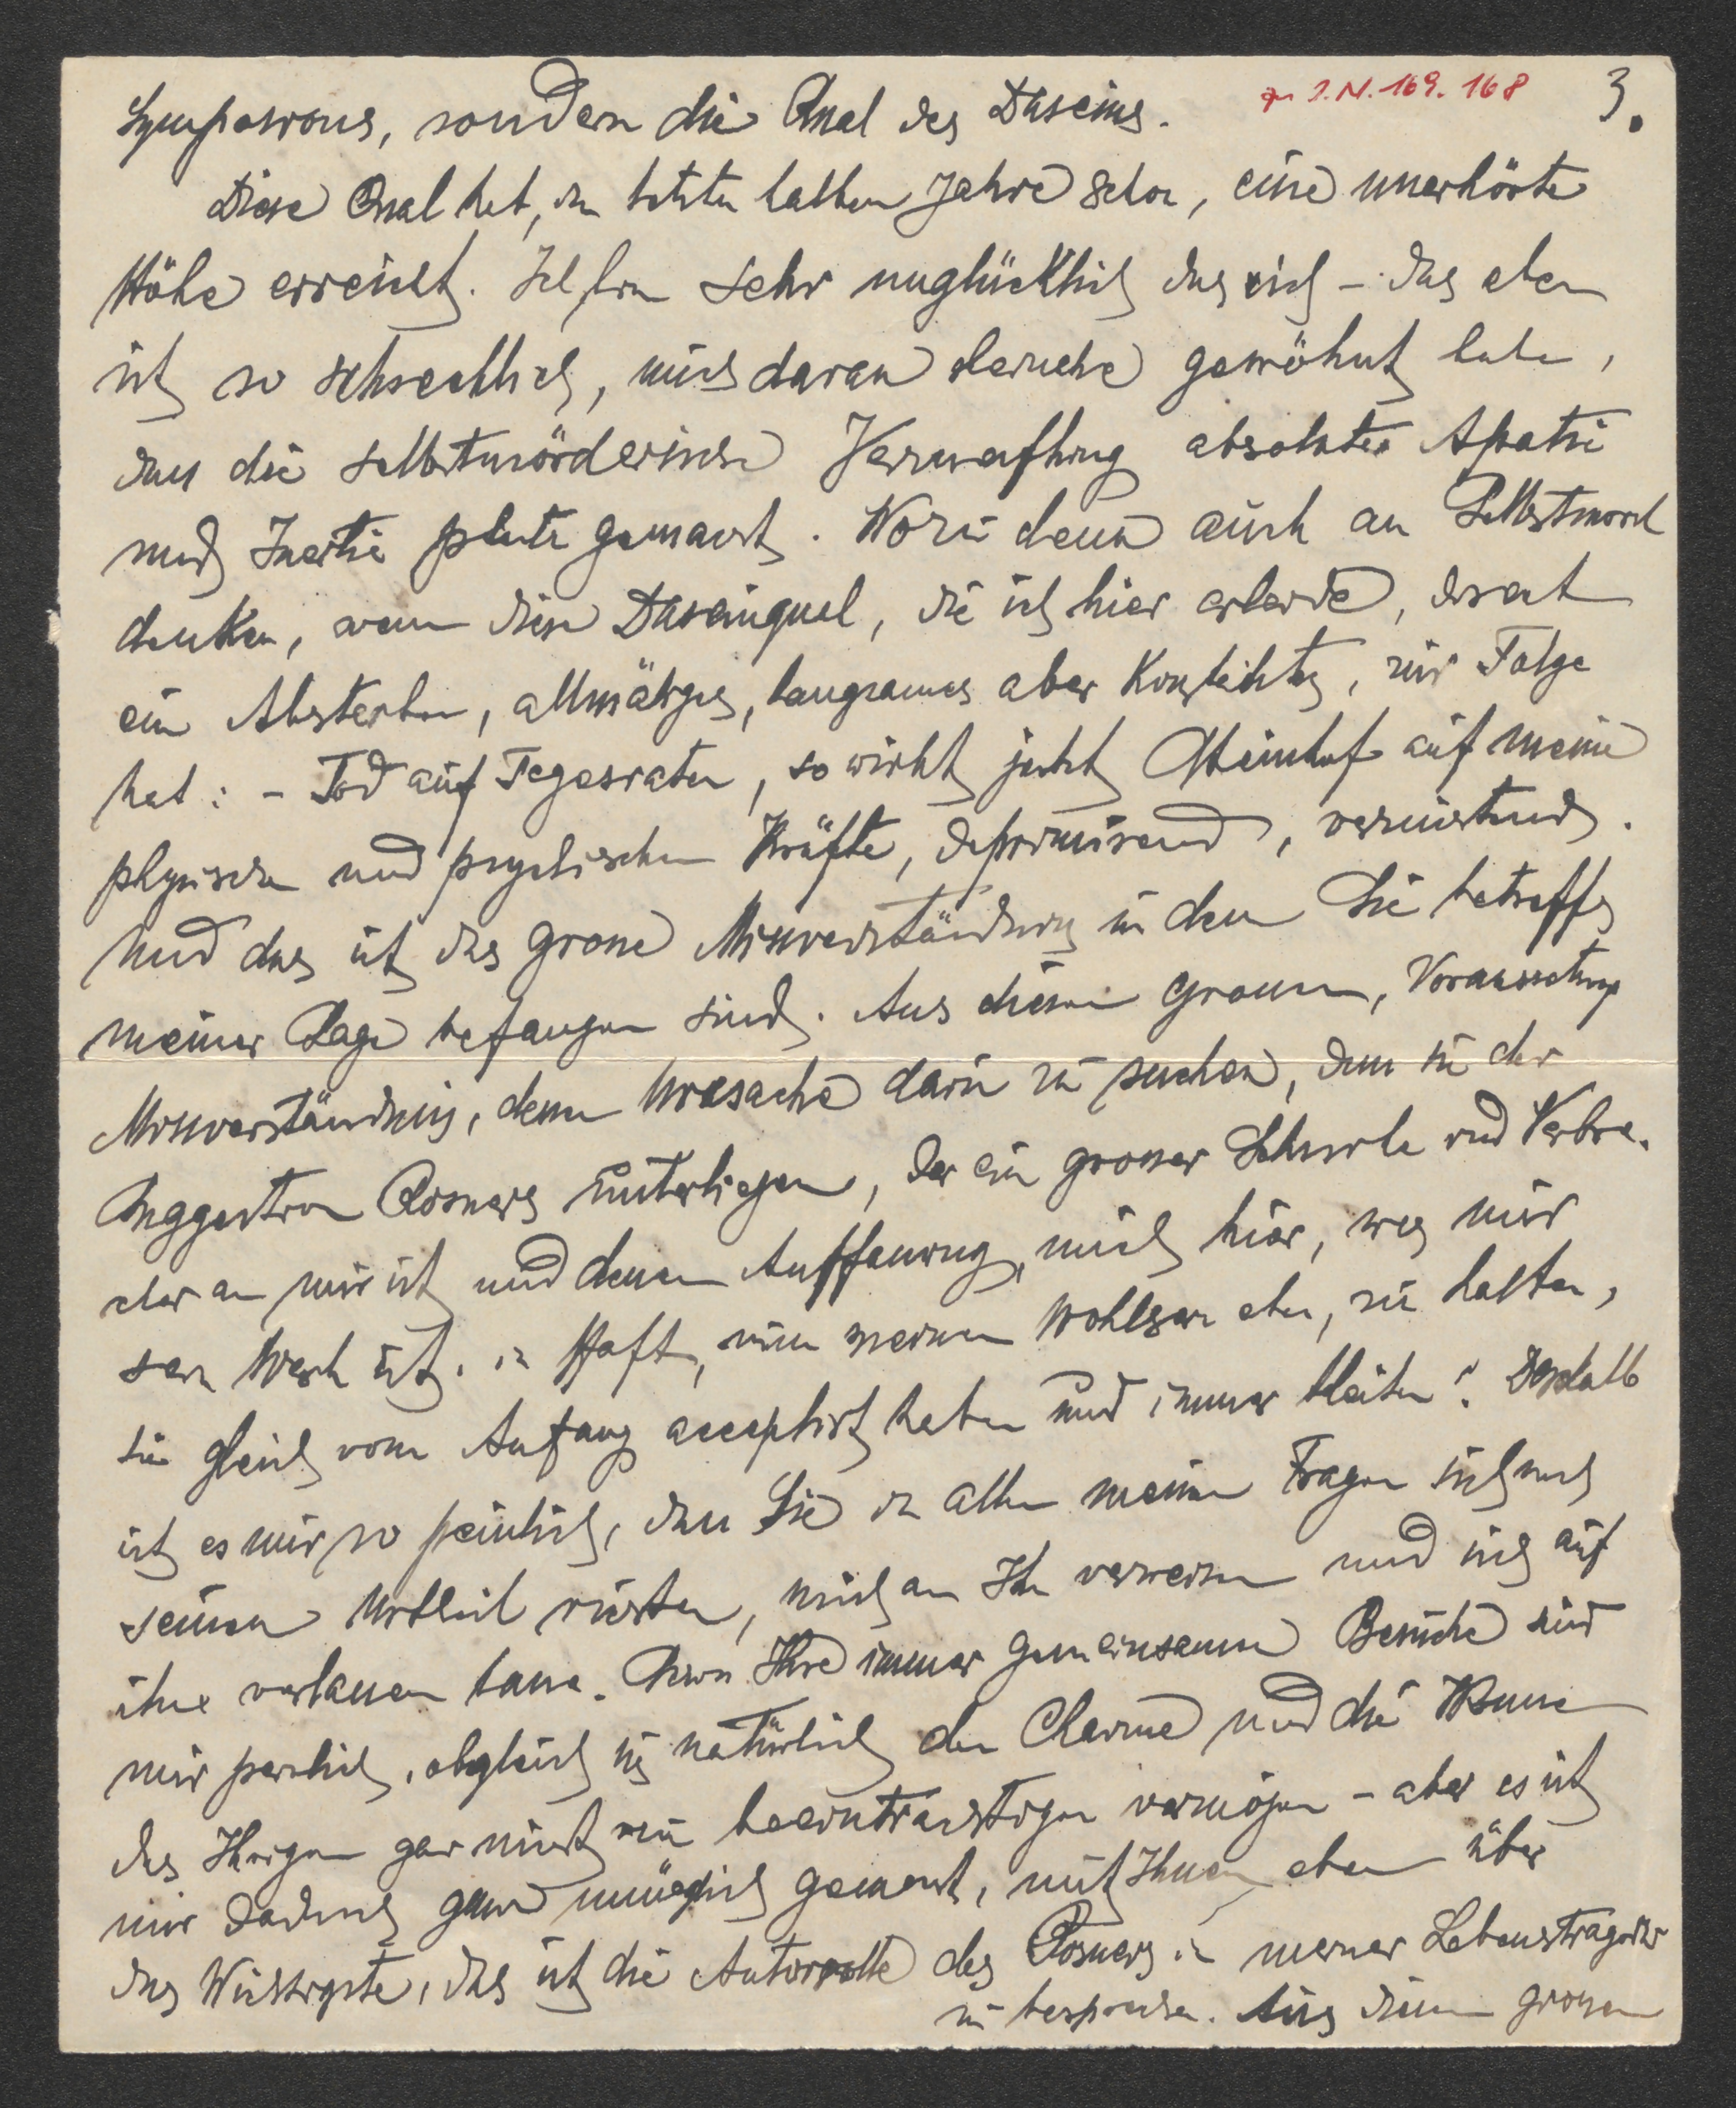 zu I.N. 169.168 3.
Symposions, sondern die Qual des Daseins.
Diese Qual hat, im letzten halben Jahre schon, eine unerhörte
Höhe erreicht. Ich bin sehr unglücklich das ich - das eben
ist so schrecklich, mich daran beinahe gewöhnt habe,
dass die selbstmörderische Verzweiflung absoluter Apatie
und Inertie platz gemacht. Wozu denn auch an Selbstmord
denken, wenn diese Daseinsqual, die ich hier erleide, derart
ein Absterben, allmäliges, langsames aber konstantes, zur Folge
hat: - Tod auf Tagesraten, so wirkt jetzt Steinhof auf meine
physischen und psychischen Kräfte, deprimirend, vernichtend.
Und das ist das grosse Missverständnis in dem Sie betreffs
meiner Lage befangen sind. Aus diesem grossen,
Missverständnis, dessen Ursache darin zu suchen, dass Sie der
Suggestion Rosners unterliegen, der ein grosser Schurke und Verbre-
cher an mir ist und dessen Auffassung, mich hier, was nur
sein Werk ist, in Haft, um meinem Wohlsein eben, zu halten,
Sie gleich vom Anfang acceptirt haben und immer bleiben! Deshalb
ist es mir so peinlich, dass Sie in allen meinen Fragen sich nach
seinem Urtheil richten, mich an Ihn verweisen und sich auf
ihn verlassen. Ihre immer gemeinsamen Besuche sind
mir peinlich, obgleich sie natürlich den Charme und die Wonne
des Ihrigen gar nicht zu beeinträchtigen vermögen - aber es ist
mir dadurch ganz unmöglich gemacht, mit Ihnen eben über
das Wichtigste, das ist die Autorrolle des Rosners in meiner Lebenstragödie
zu besprechen. Aus diesem grossen